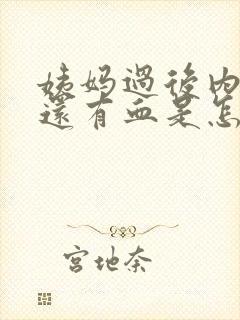 姨妈過後內
還有血是怎
宮地奈